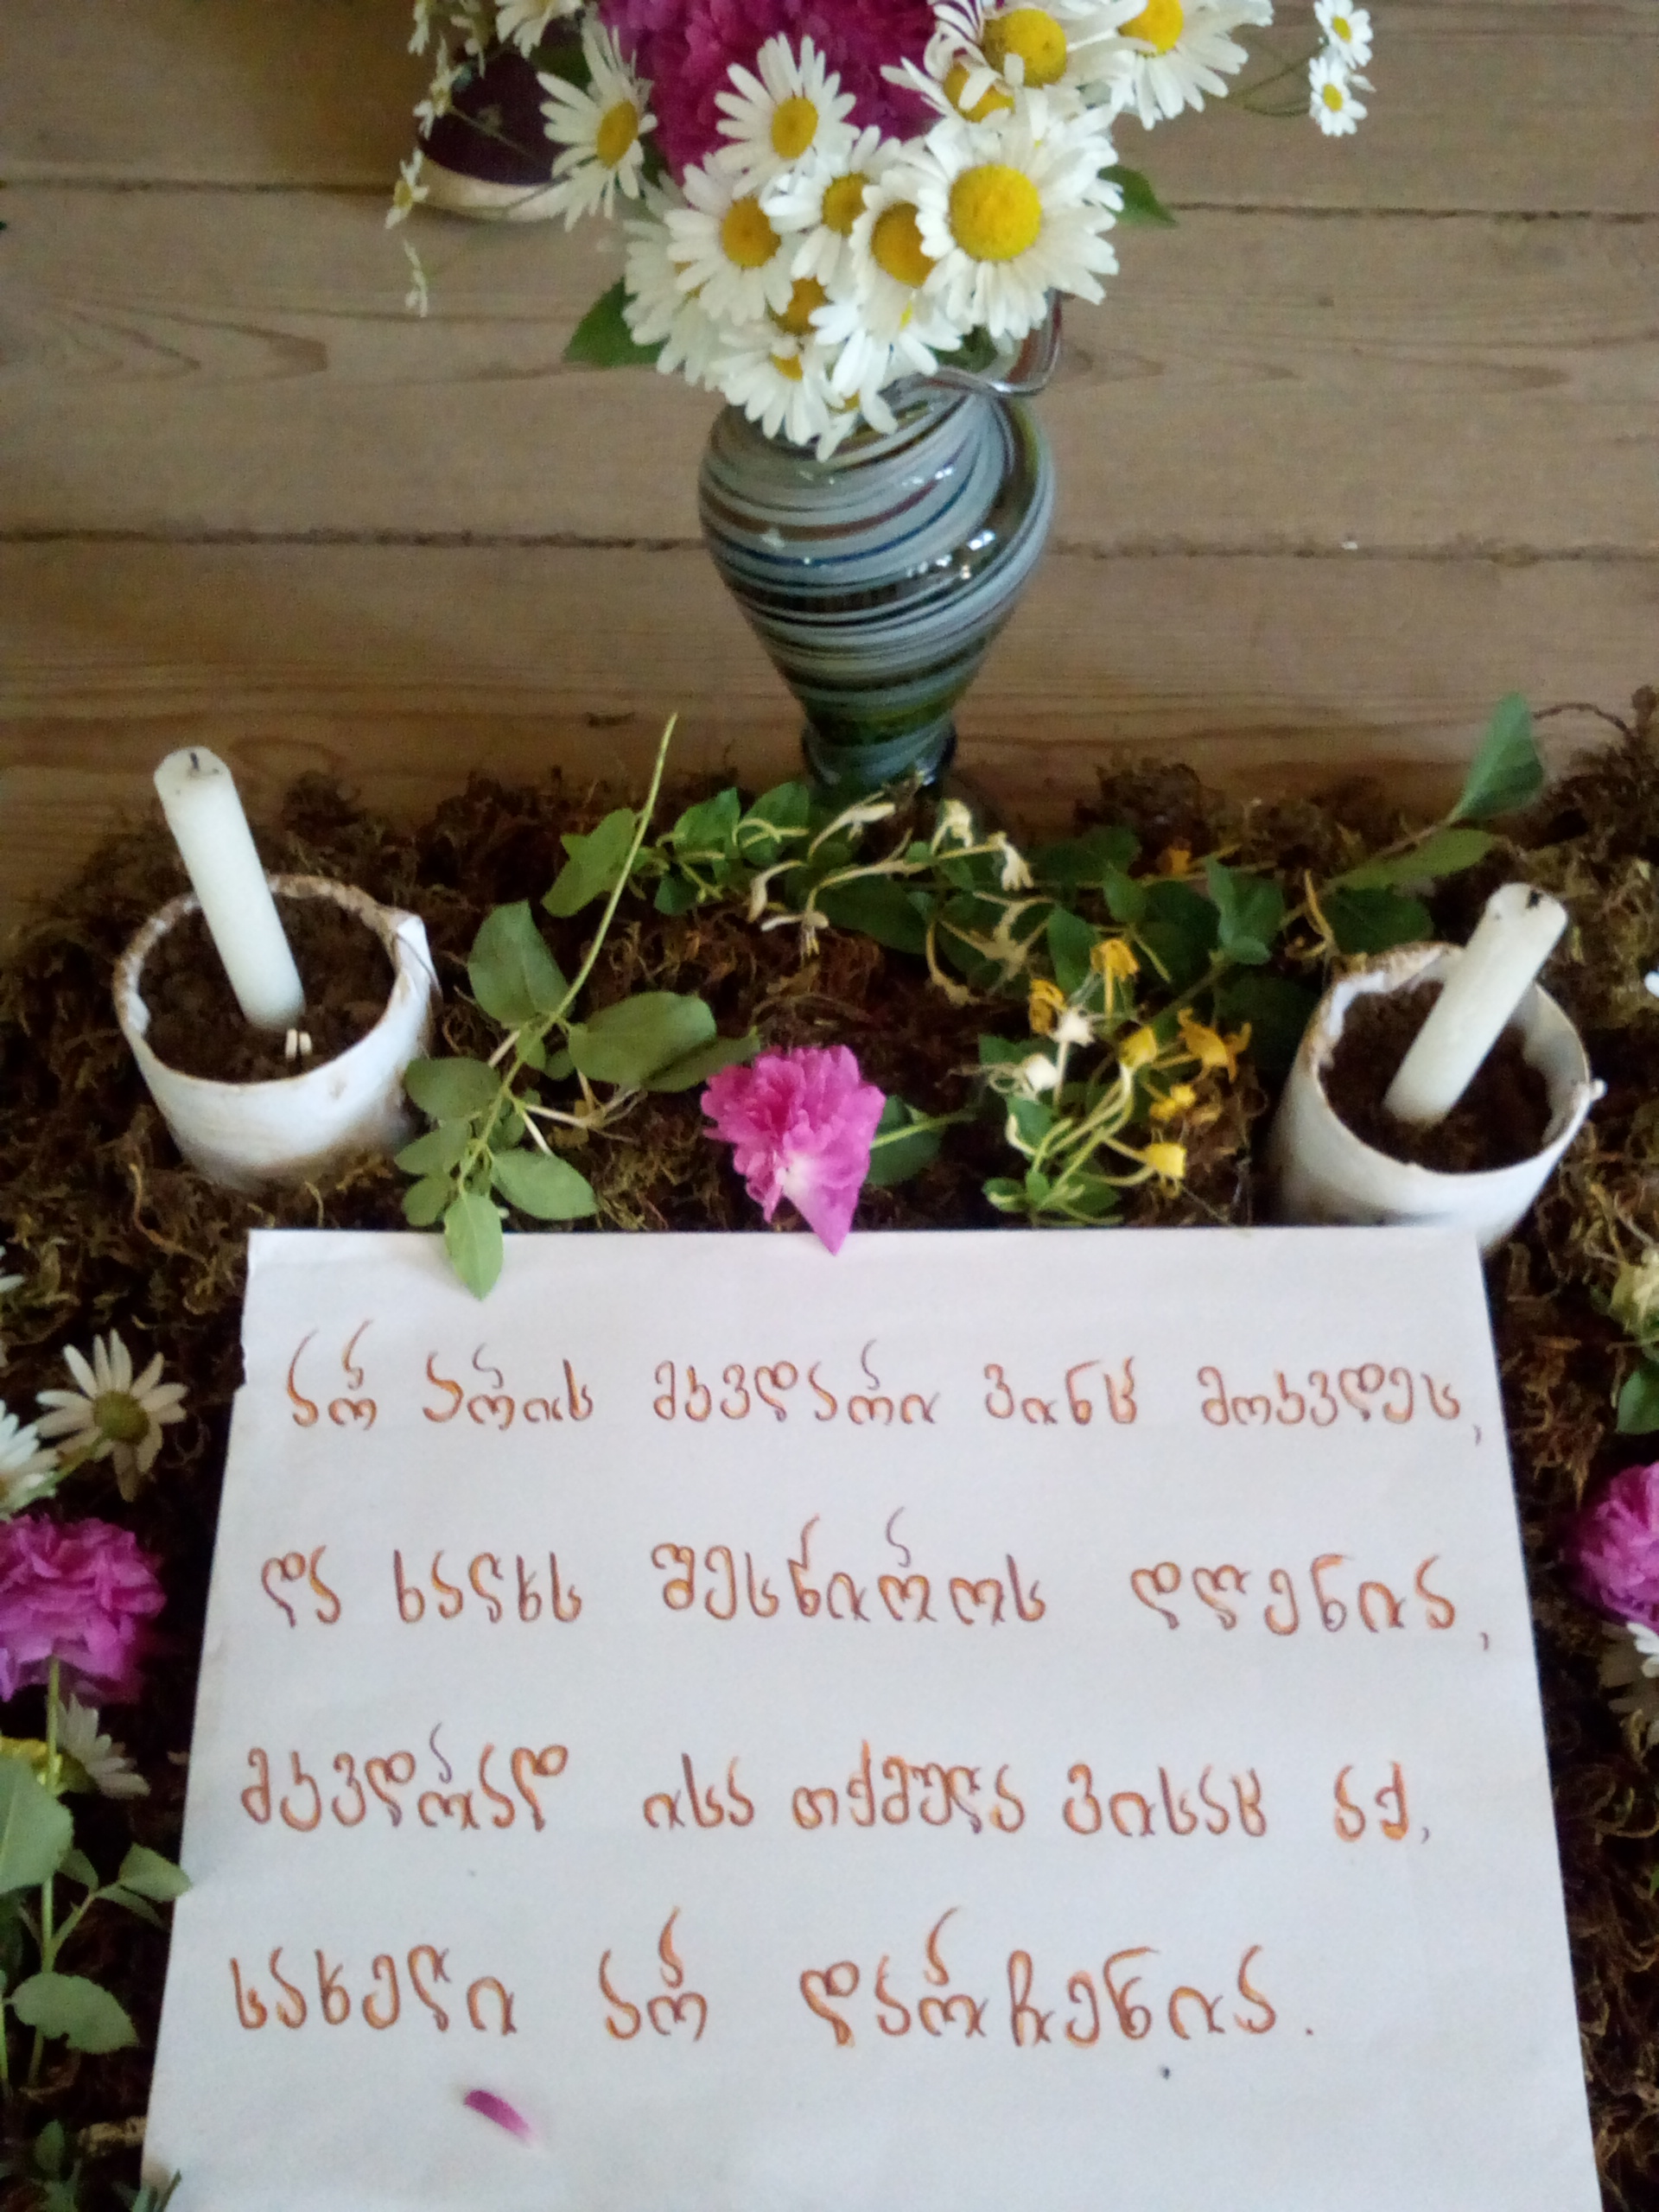 არ არის მკვდარი ვინც მოკვდეს,
და ხალხს შესწიროს დღენია,
მკვდრად ისა თქმულა ვისაც აქ,
სახელი არ დარჩენია.